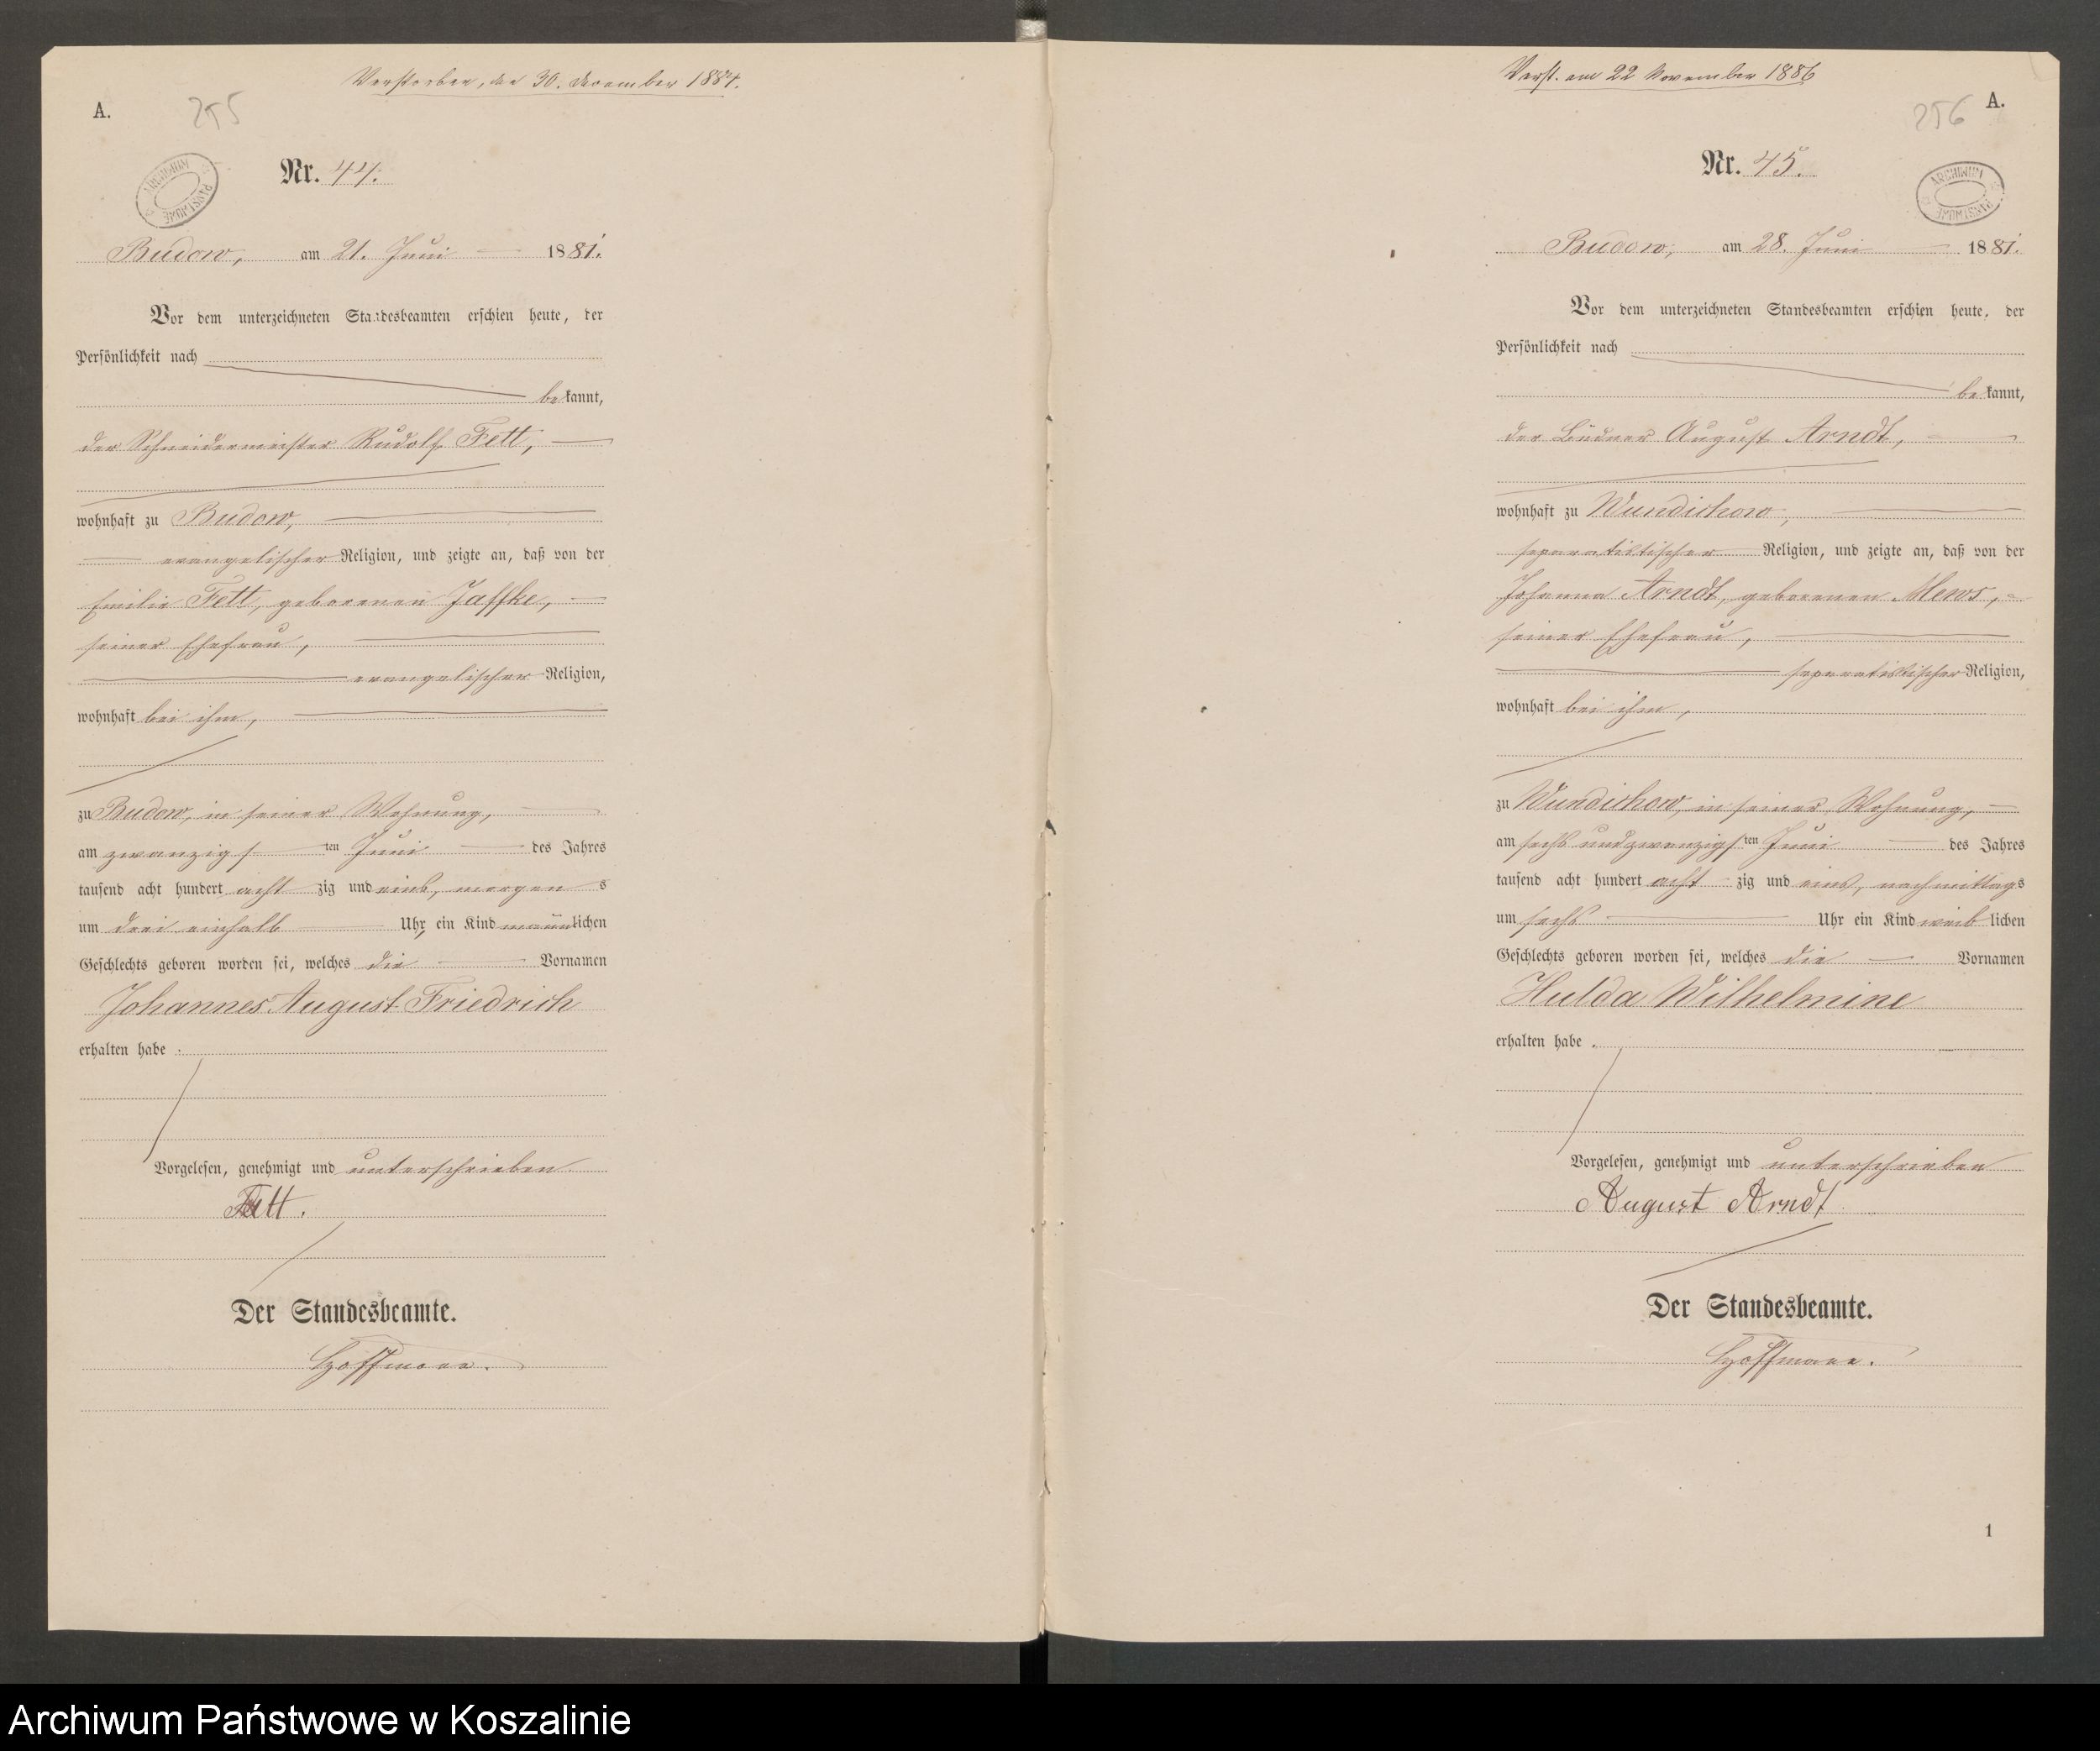 Verstorben, den 30. Dezember 1884.
A.
255
Nr. 44.
ARCHIWUM PAŃSTWOWE
Budow, am 21. Juni 1881.
Vor dem unterzeichneten Standesbeamten erschien heute, der
Persönlichkeit nach
bekannt,
der Schneidermeister Rudolf Fett,
wohnhaft zu Budow,
evangelischer Religion, und zeigte an, daß von der
Emilie Fett, geborenen Jaffke,
seiner Ehefrau,
evangelischer Religion,
wohnhaft bei ihm,
zu Budow, in seiner Wohnung,
am zwanzigsten Juni des Jahres
tausend acht hundert achtzig und eins, morgens
um drei einhalb Uhr, ein Kind männlichen
Geschlechts geboren worden sei, welches die Vornamen
Johannes August Friedrich
erhalten habe.
Vorgelesen, genehmigt und unterschrieben
Fett.
Der Standesbeamte.
Hoffmann.
Verst. am 22 November 1886
A.
256
Nr. 45.
ARCHIWUM PAŃSTWOWE
Budow, am 28. Juni 1881.
Vor dem unterzeichneten Standesbeamten erschien heute, der
Persönlichkeit nach
bekannt,
der Büdner August Arndt,
wohnhaft zu Wundichow,
separatistischer Religion, und zeigte an, daß von der
Johanna Arndt, geborenen Mews,
seiner Ehefrau,
separatistischer Religion,
wohnhaft bei ihm,
zu Wundichow, in seiner Wohnung,
am sechs und zwanzigsten Juni des Jahres
tausend acht hundert achtzig und eins, nachmittags
um sechs Uhr ein Kind weiblichen
Geschlechts geboren worden sei, welches die Vornamen
Hulda Wilhelmine
erhalten habe.
Vorgelesen, genehmigt und unterschrieben
August Arndt
Der Standesbeamte.
Hoffmann.
1
Archiwum Państwowe w Koszalinie